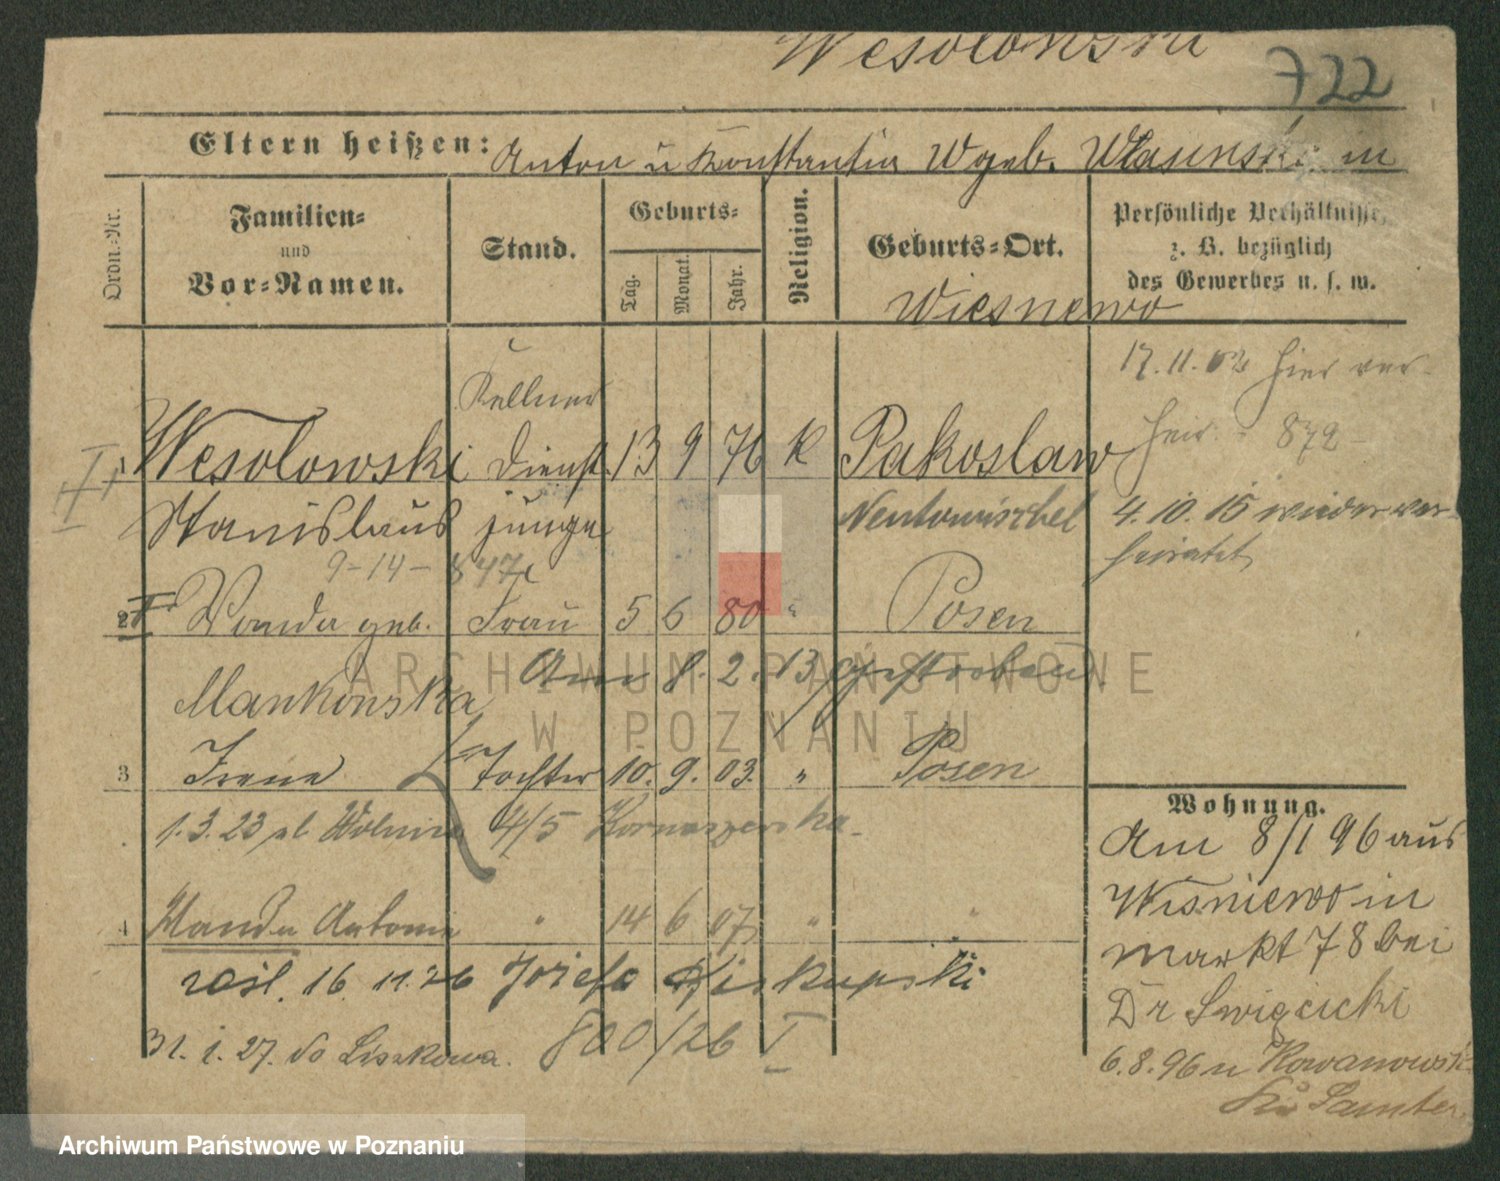 Wesolowski
722
Eltern heißen: Anton u Konstantia W geb. Wlasinski in
Ordn.-Nr.
Familien-
und
Vor-Namen.
Stand.
Geburts-
Tag.
Monat.
Jahr.
Religion.
Geburts-Ort.
Wiesnewo
Persönliche Verhältnisse,
z. B. bezüglich
des Gewerbes u. s. w.
17. 11. 02 hier ver-
heir. - 872 -
Kellner
1 Wesolowski Dienst 13 9 76 K Pakoslaw
Stanislaus junge Neutomischel
4. 10. 15 wieder ver-
heiratet
9-14- 847
2 Wanda geb. Frau 5 6 80 " Posen
Mankowska Am 8. 2. 13 gestorben.
3 Irene Tochter 10. 9. 03. " Posen
1. 3. 23 al. Wolnica 4/5 Kornaszewska
4 Wanda Antonie " 14 6 07 " "
zaśl. 16. 11. 26 Józefa Biskupski
31. 1. 27. do Liszkowa. 800/26 I
Wohnung.
Am 8/1 96 aus
Wiśniewo in
Markt 78 bei
Dr Swięcicki
6. 8. 96 n Kowanowski
Kr Samter
ARCHIWUM PAŃSTWOWE
W POZNANIU
Archiwum Państwowe w Poznaniu